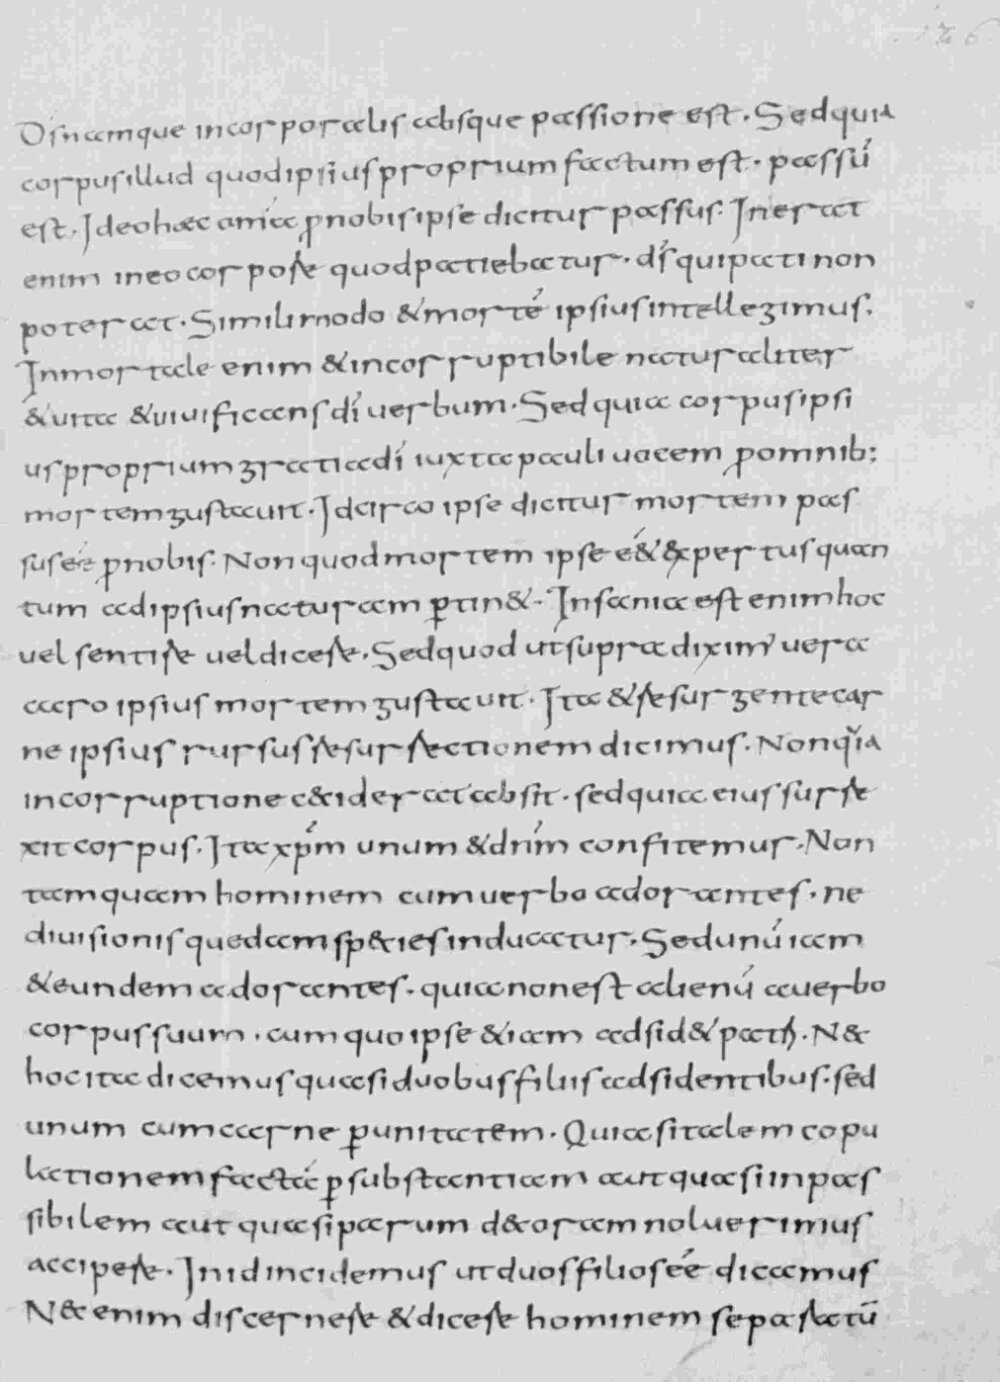 D̄s namque incorporalis absque passione est. Sed quia
corpus illud quod ipsius proprium factum est. passū
est. Ideo haec omīa p nobis ipse dicitur passus. Inerat
enim in eo corpore quod patiebatur. d̄s qui pati non
poterat. Simili modo & mortē ipsius intellegimus.
Inmortale enim & incorruptibile naturaliter
& uita & uiuificans d̄i uerbum. Sed quia corpus ipsi
us proprium gratia d̄i iuxta pauli uocem p omnib;
mortem gustauit. Idcirco ipse dicitur mortem pas
sus eē p nobis. Non quod mortem ipse eēt expertus quan
tum ad ipsius naturam ptin&. Insania est enim hoc
uel sentire uel dicere. Sed quod ut supra dixim' uera
caro ipsius mortem gustauit. Ita & resurgente car
ne ipsius rursus resurrectionem dicimus. Non q̆ia
in corruptione c&iderat absit. sed quia eius surre
xit corpus. Ita xp̄m unum & dn̄m confitemur. Non
tamquam hominem cum uerbo adorantes. ne
diuisionis quedam sp&ies inducatur. Sed unū iam
& eundem adorantes. quia non est alienū a uerbo
corpus suum. cum quo ipse &iam adsid& patri. N&
hoc ita dicemus quasi duobus filiis adsidentibus. sed
unum cum carne p unitatem. Quia si talem copu
lationem factā p substantiam aut quasi inpas
sibilem aut quasi parum d&oram noluerimus
accipere. In id incidemus ut duos filios eē dicamus
N& enim discernere & dicere hominem separatū